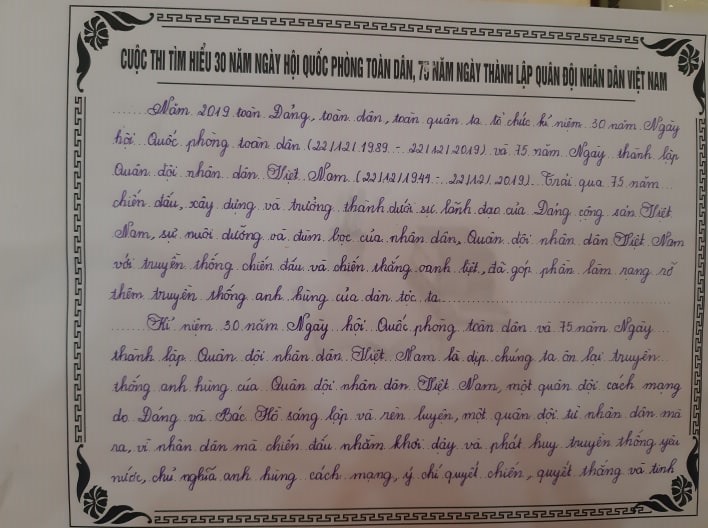 CUỘC THI TÌM HIỂU 30 NĂM NGÀY HỘI QUỐC PHÒNG TOÀN DÂN, 75 NĂM NGÀY THÀNH LẬP QUÂN ĐỘI NHÂN DÂN VIỆT NAM
Năm 2019 toàn Đảng, toàn dân, toàn quân ta tổ chức kỉ niệm 30 năm Ngày
hội Quốc phòng toàn dân (22/12/1989 - 22/12/2019) và 75 năm Ngày thành lập
Quân đội nhân dân Việt Nam (22/12/1944 - 22/12/2019). Trải qua 75 năm
chiến đấu, xây dựng và trưởng thành dưới sự lãnh đạo của Đảng cộng sản Việt
Nam, sự nuôi dưỡng và đùm bọc của nhân dân, Quân đội nhân dân Việt Nam
với truyền thống chiến đấu và chiến thắng oanh liệt, đã góp phần làm rạng rỡ
thêm truyền thống anh hùng của dân tộc ta.
Kỉ niệm 30 năm Ngày hội Quốc phòng toàn dân và 75 năm Ngày
thành lập Quân đội nhân dân Việt Nam là dịp chúng ta ôn lại truyền
thống anh hùng của Quân đội nhân dân Việt Nam, một quân đội cách mạng
do Đảng và Bác Hồ sáng lập và rèn luyện, một quân đội từ nhân dân mà
ra, vì nhân dân mà chiến đấu nhằm khơi dậy và phát huy truyền thống yêu
nước, chủ nghĩa anh hùng cách mạng, ý chí quyết chiến, quyết thắng và tinh